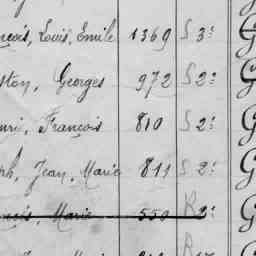 nçois, Louis, Emile 1369 S 3: G
ston, Georges 972 S 2: G
nri, François 810 S 2: G
ph, Jean, Marie 811 S 2: G
Marie 550 R 2: G